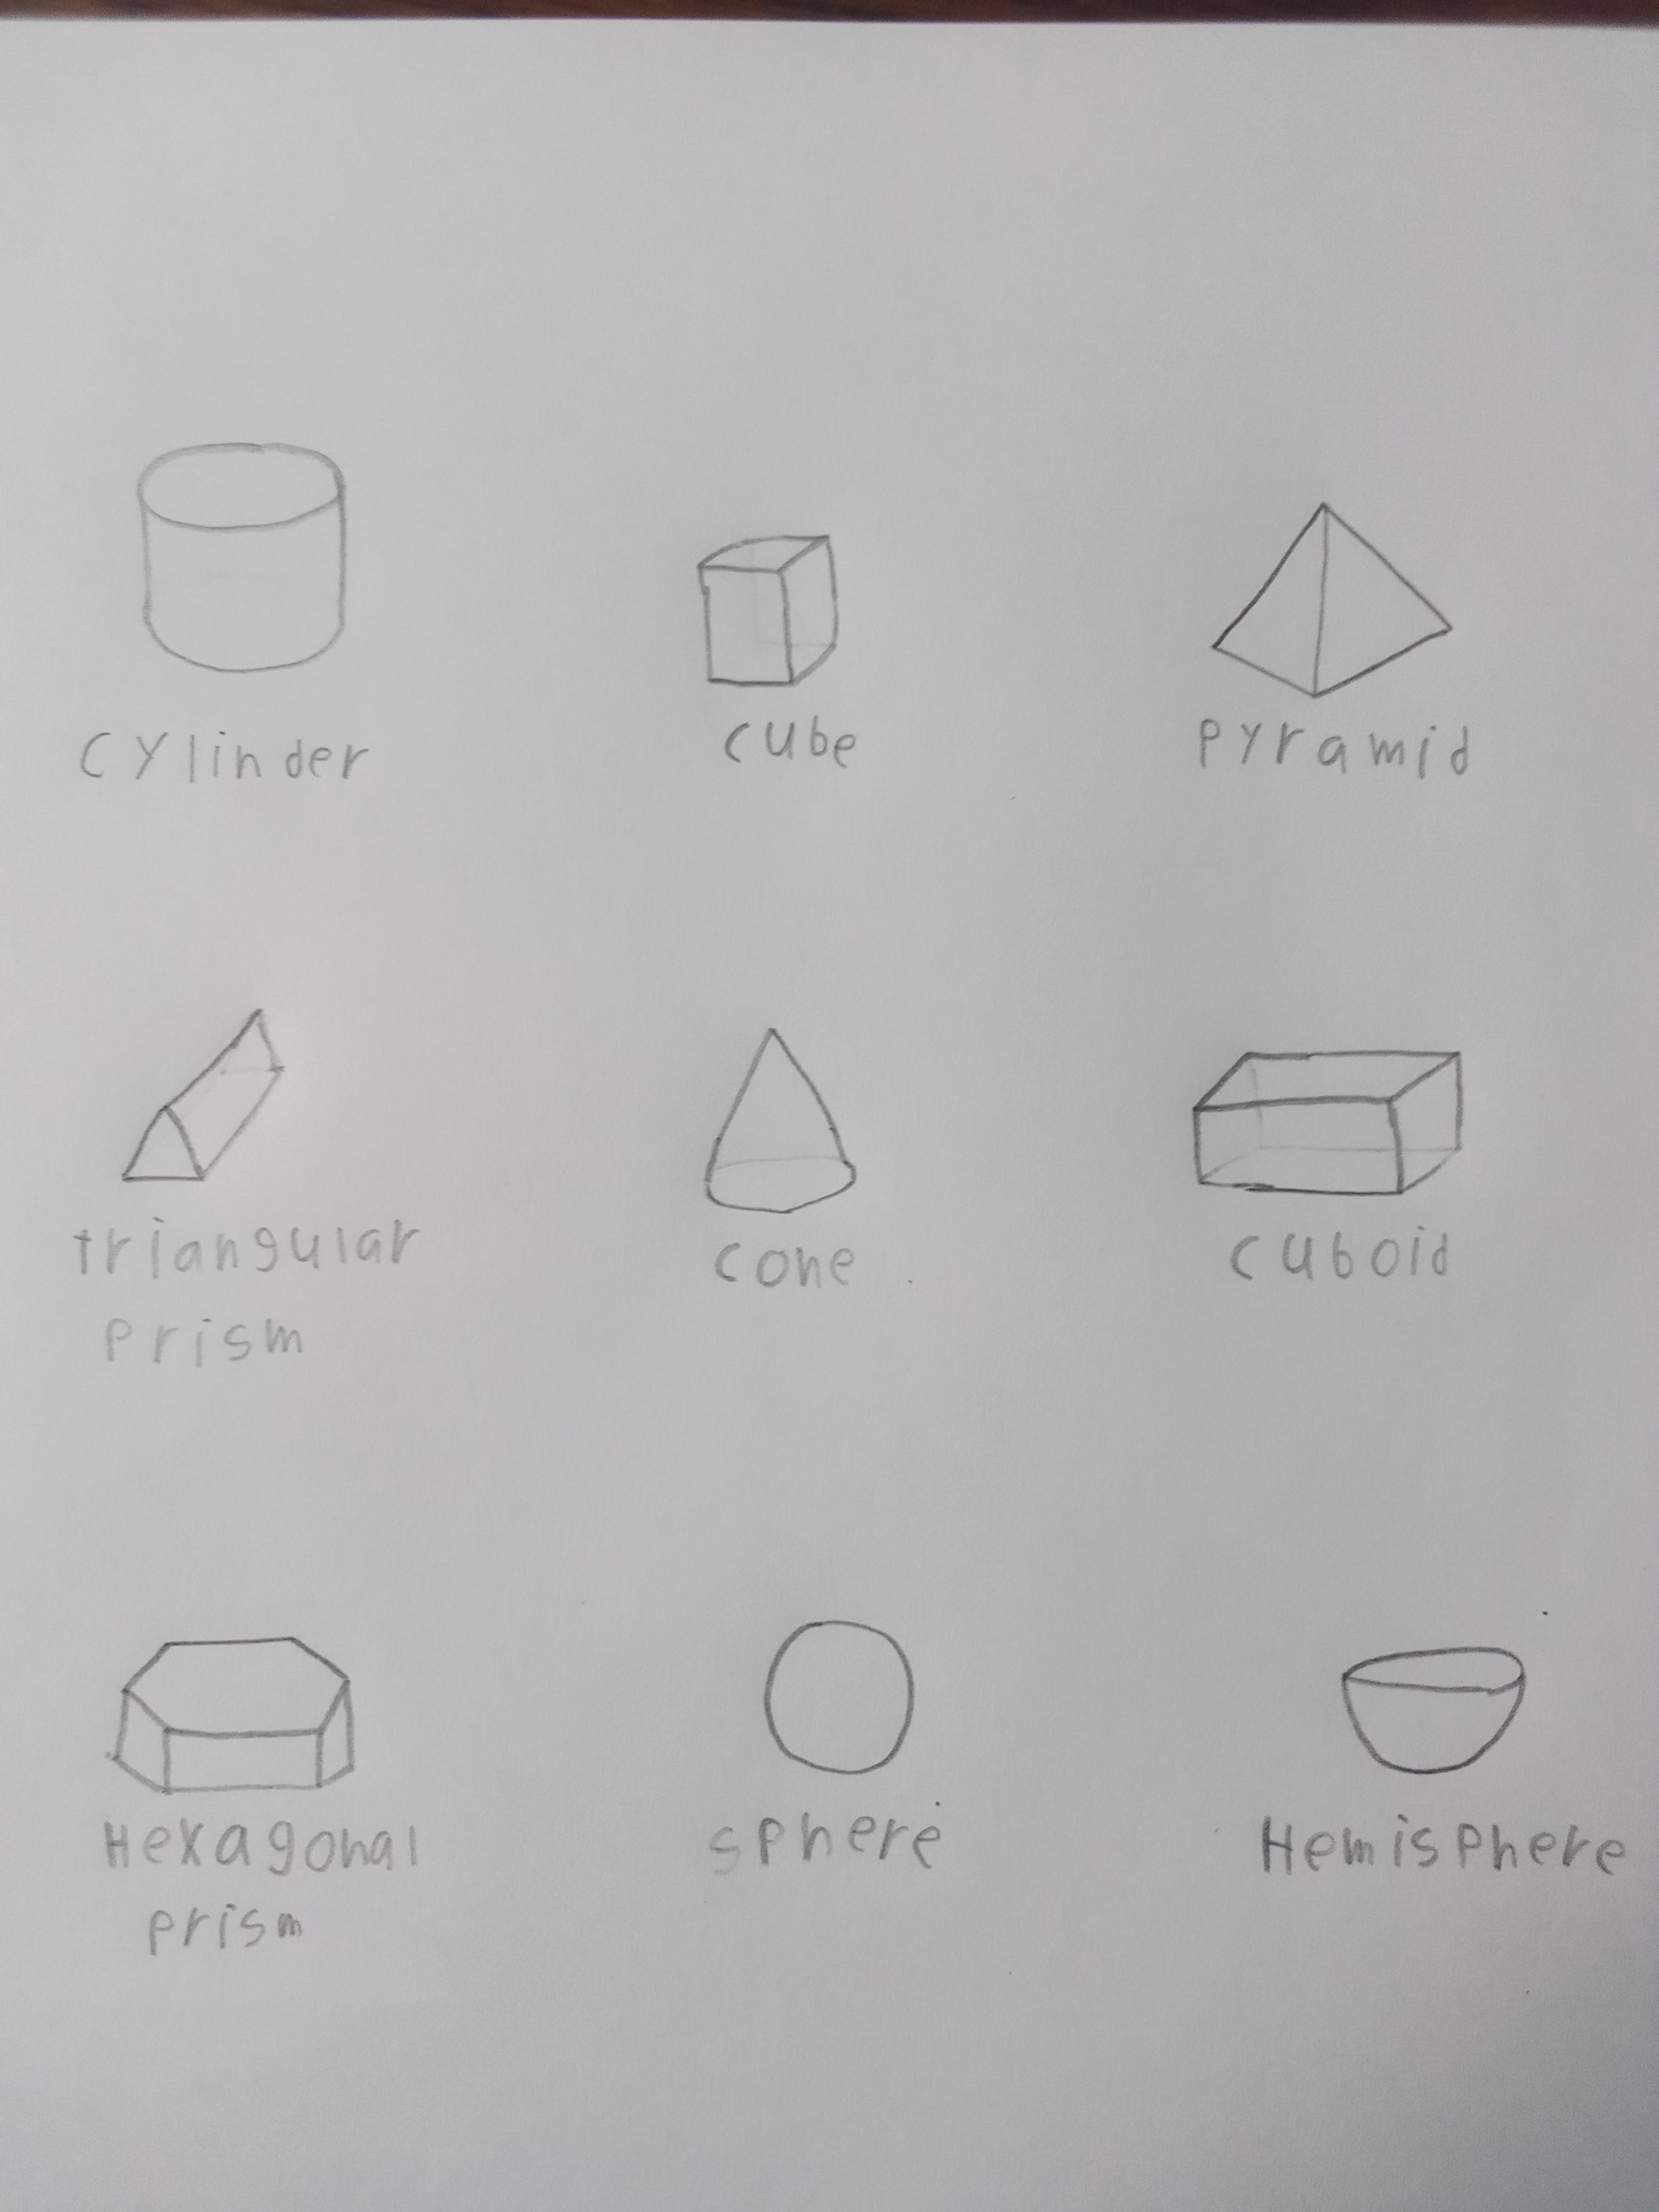 cylinder
cube
pyramid
triangular
prism
cone
cuboid
Hexagonal
prism
sphere
Hemisphere